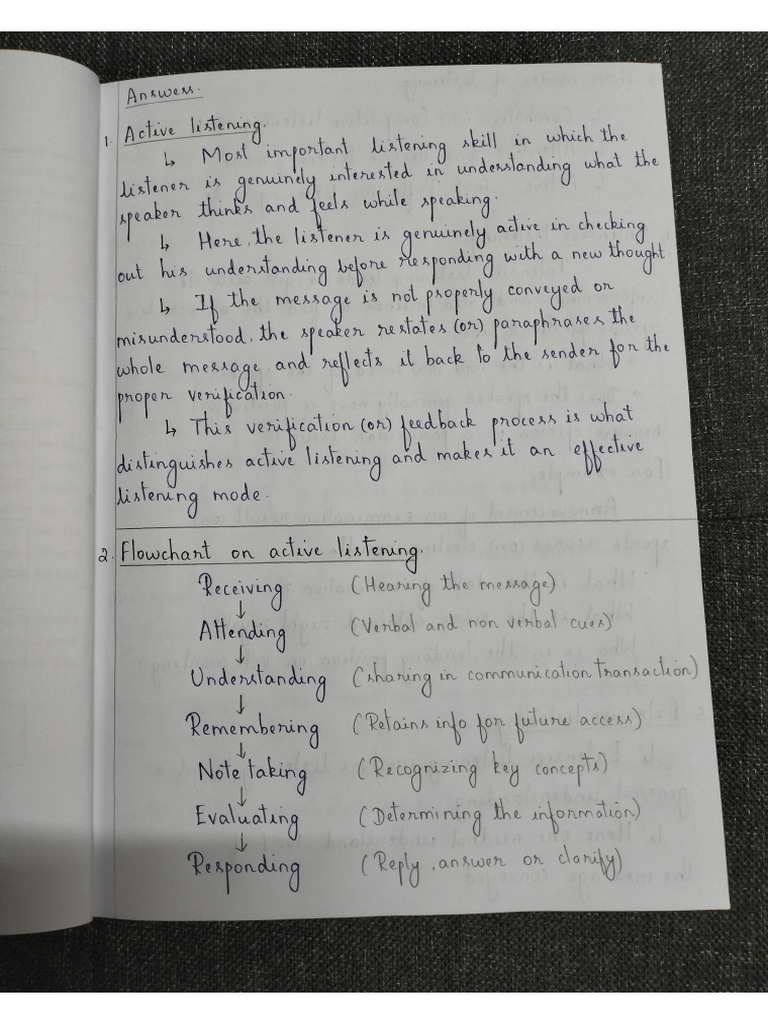 Answers.
1. Active listening.
↳ Most important listening skill in which the
listener is genuinely interested in understanding what the
speaker thinks and feels while speaking.
↳ Here, the listener is genuinely active in checking
out his understanding before responding with a new thought
↳ If the message is not properly conveyed or
misunderstood, the speaker restates (or) paraphrases the
whole message and reflects it back to the sender for the
proper verification.
↳ This verification (or) feedback process is what
distinguishes active listening and makes it an effective
listening mode.
2. Flowchart on active listening.
Receiving (Hearing the message)
↓
Attending (Verbal and non verbal cues)
↓
Understanding (sharing in communication transaction)
↓
Remembering (Retains info for future access)
↓
Note taking (Recognizing key concepts)
↓
Evaluating (Determining the information)
↓
Responding (Reply, answer or clarify)